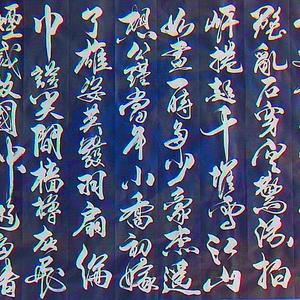 壁亂石穿空驚濤拍
岸捲起千堆雪江山
如畫一時多少豪杰遥
想公瑾當年小喬初嫁
了雄姿英發羽扇綸
巾談笑間檣櫓灰飛
煙滅故國神遊多情